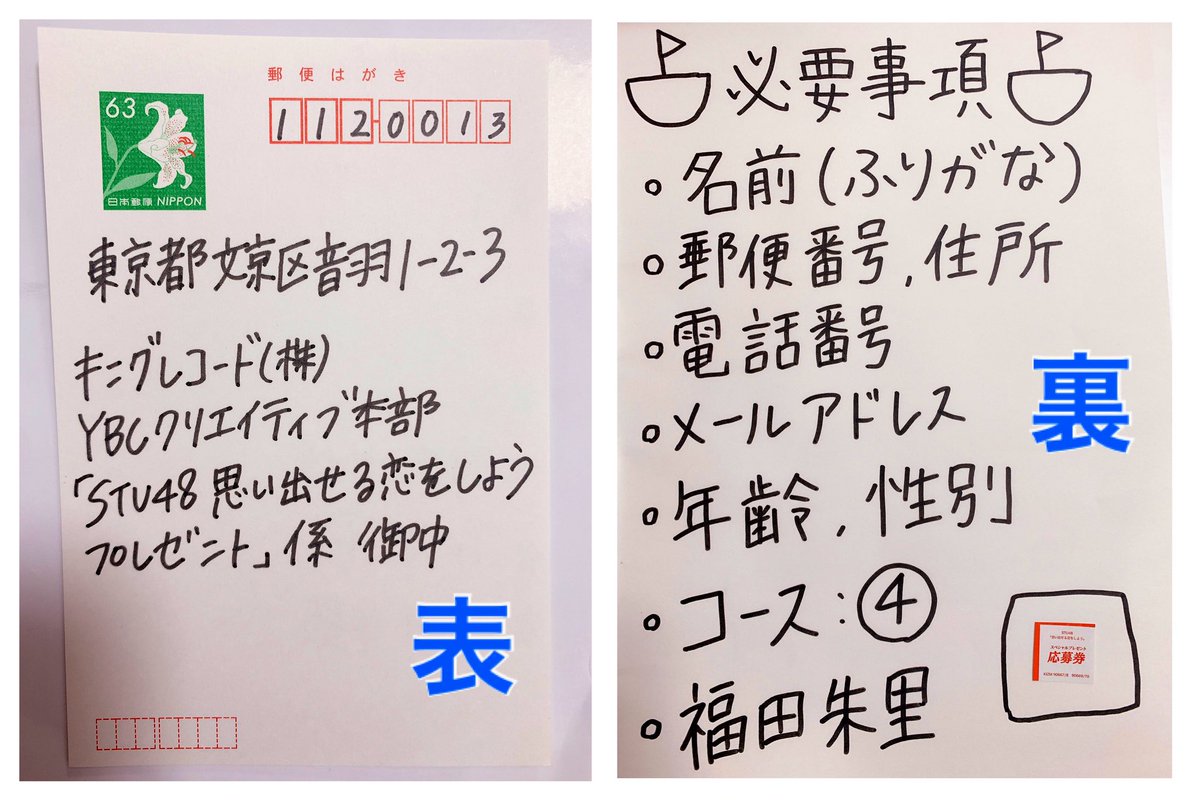 63
日本郵便 NIPPON
郵便はがき
1120013
東京都文京区音羽1-2-3
キングレコード(株)
YBCクリエイティブ本部
「STU48 思い出せる恋をしよう
プレゼント」係 御中
表
必要事項
名前(ふりがな)
郵便番号,住所
電話番号
メールアドレス
年齢,性別
コース:④
福田朱里
裏
STU48
「思い出せる恋をしよう」
スペシャルプレゼント
応募券